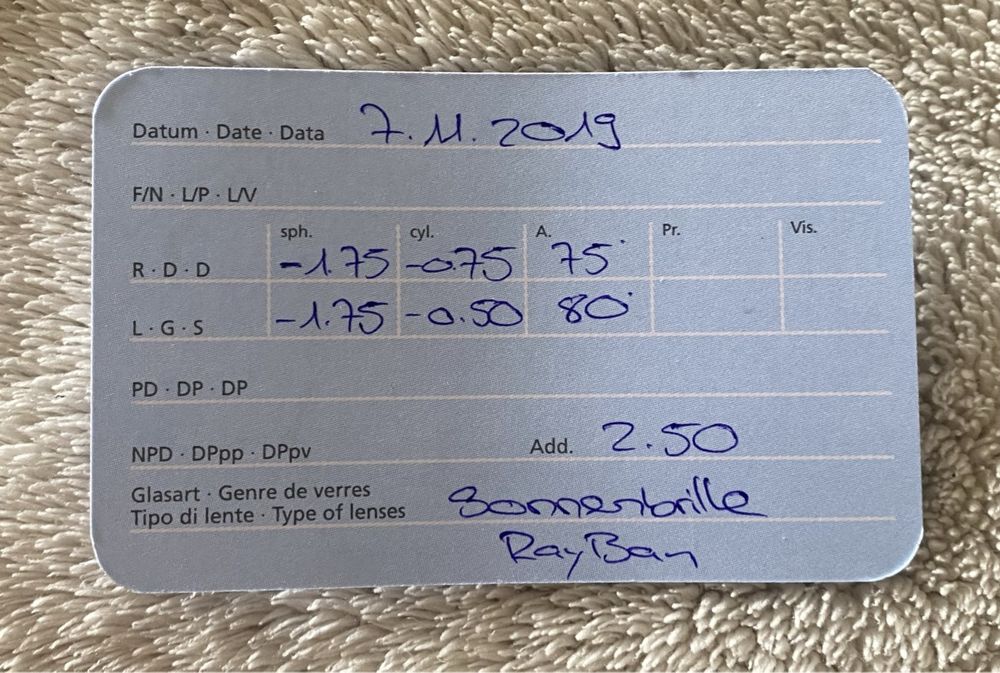 Datum · Date · Data 7.11.2019
F/N · L/P · L/V
sph. cyl. A. Pr. Vis.
R · D · D -1.75 -0.75 75°
L · G · S -1.75 -0.50 80°
PD · DP · DP
NPD · DPpp · DPpv Add. 2.50
Glasart · Genre de verres
Tipo di lente · Type of lenses Sonnenbrille
RayBan